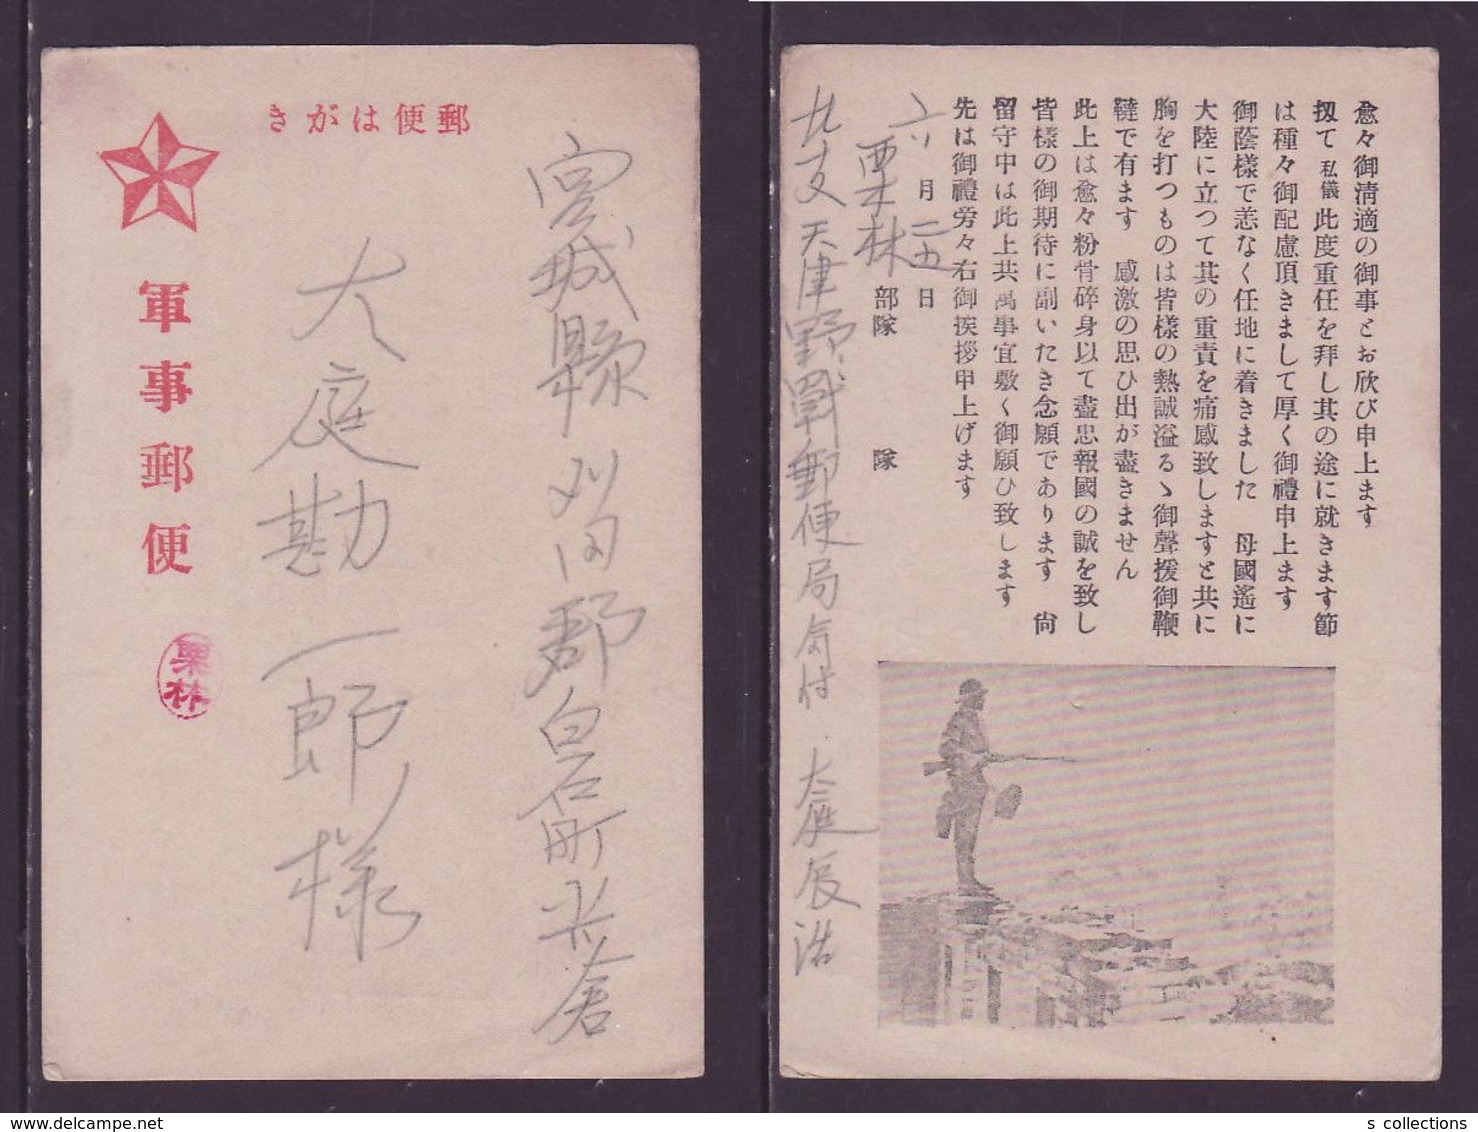 郵便はがき
軍事郵便
栗林
宮城縣刈田郡白石町
大庭勘一郎様
愈々御清適の御事とお欣び申上ます
扨て私儀此度重任を拜し其の途に就きます節
は種々御配慮頂きまして厚く御禮申上ます
御蔭樣で恙なく任地に着きました　母國遙に
大陸に立つて其の重責を痛感致しますと共に
胸を打つものは皆樣の熱誠溢るゝ御聲援御鞭
韃で有ます　感激の思ひ出が盡きません
此上は愈々粉骨碎身以て盡忠報國の誠を致し
皆樣の御期待に副いたき念願であります　尙
留守中は此上共萬事宜敷く御願ひ致します
先は御禮旁々右御挨拶申上げます
月二五日
栗林部隊　　隊
北支天津野戰郵便局気付　大庭辰浩
s collections